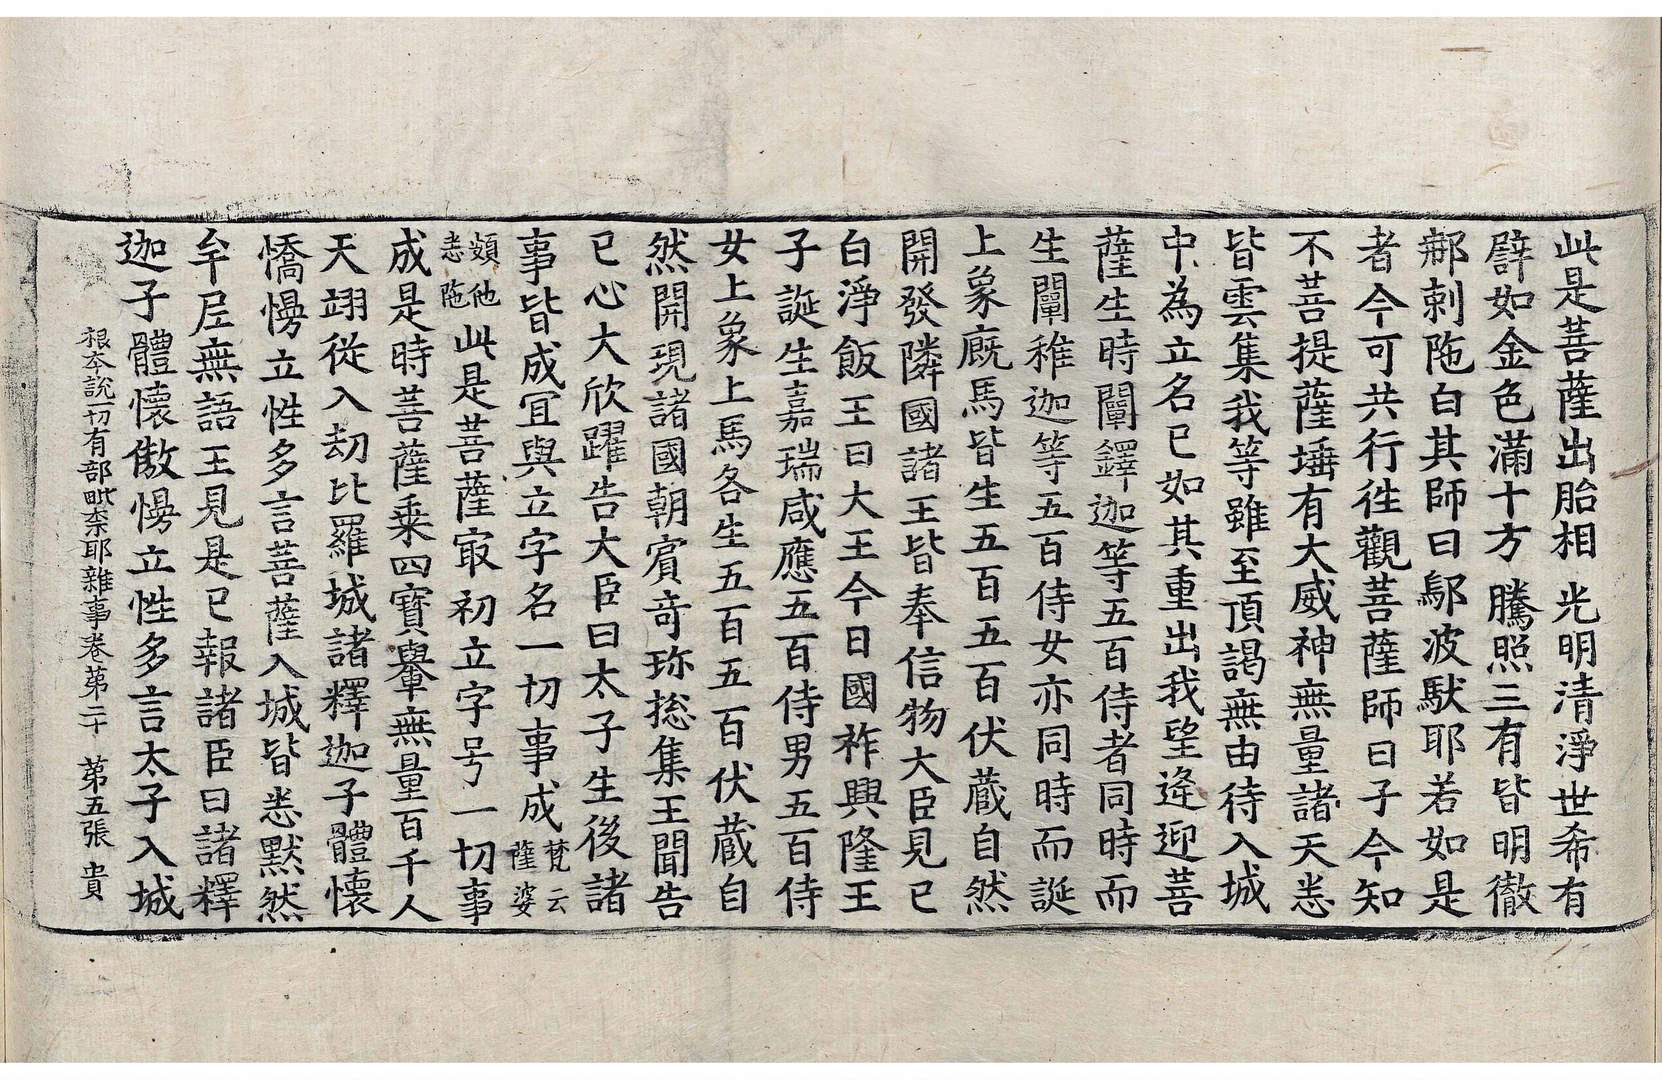 此是菩薩出胎相光明清淨世希有
譬如金色滿十方騰照三有皆明徹
鄔剌陁白其師曰鄔波馱耶若如是
者今可共行徃觀菩薩師曰子今知
不菩提薩埵有大威神無量諸天悉
皆雲集我等雖至頂謁無由待入城
中為立名已如其重出我望逄迎菩
薩生時闡鐸迦等五百侍者同時而
生闡稚迦等五百侍女亦同時而誕
上象廐馬皆生五百五百伏蔵自然
開發隣國諸王皆奉信物大臣見已
白淨飯王曰大王今日國祚興隆王
子誕生嘉瑞咸應五百侍男五百侍
女上象上馬各生五百五百伏蔵自
然開現諸國朝賔竒珎捴集王聞告
已心大欣躍告大臣曰太子生後諸
事皆成冝與立字名一切事成梵云薩婆
頞他悉陁此是菩薩㝡初立字号一切事
成是時菩薩乗四寶轝無量百千人
天翊從入劫比羅城諸釋迦子體懷
憍慢立性多言菩薩入城皆悉默然
牟尼無語王見是已報諸臣曰諸釋
迦子體懷傲慢立性多言太子入城
根本說一切有部毗奈耶雜事卷苐二十 苐五張 貴